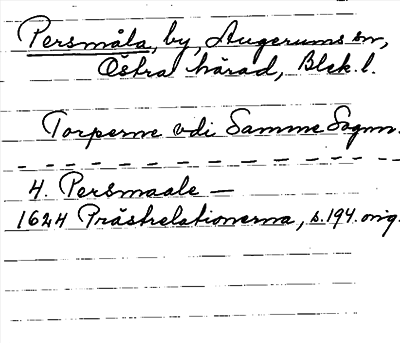 Persmåla, by, Augerums sn,
Östra härad, Blek. l.
Torperne vdi Samme Sogn.
4. Persmaale —
1624 Prästrelationerna, s. 194. orig.